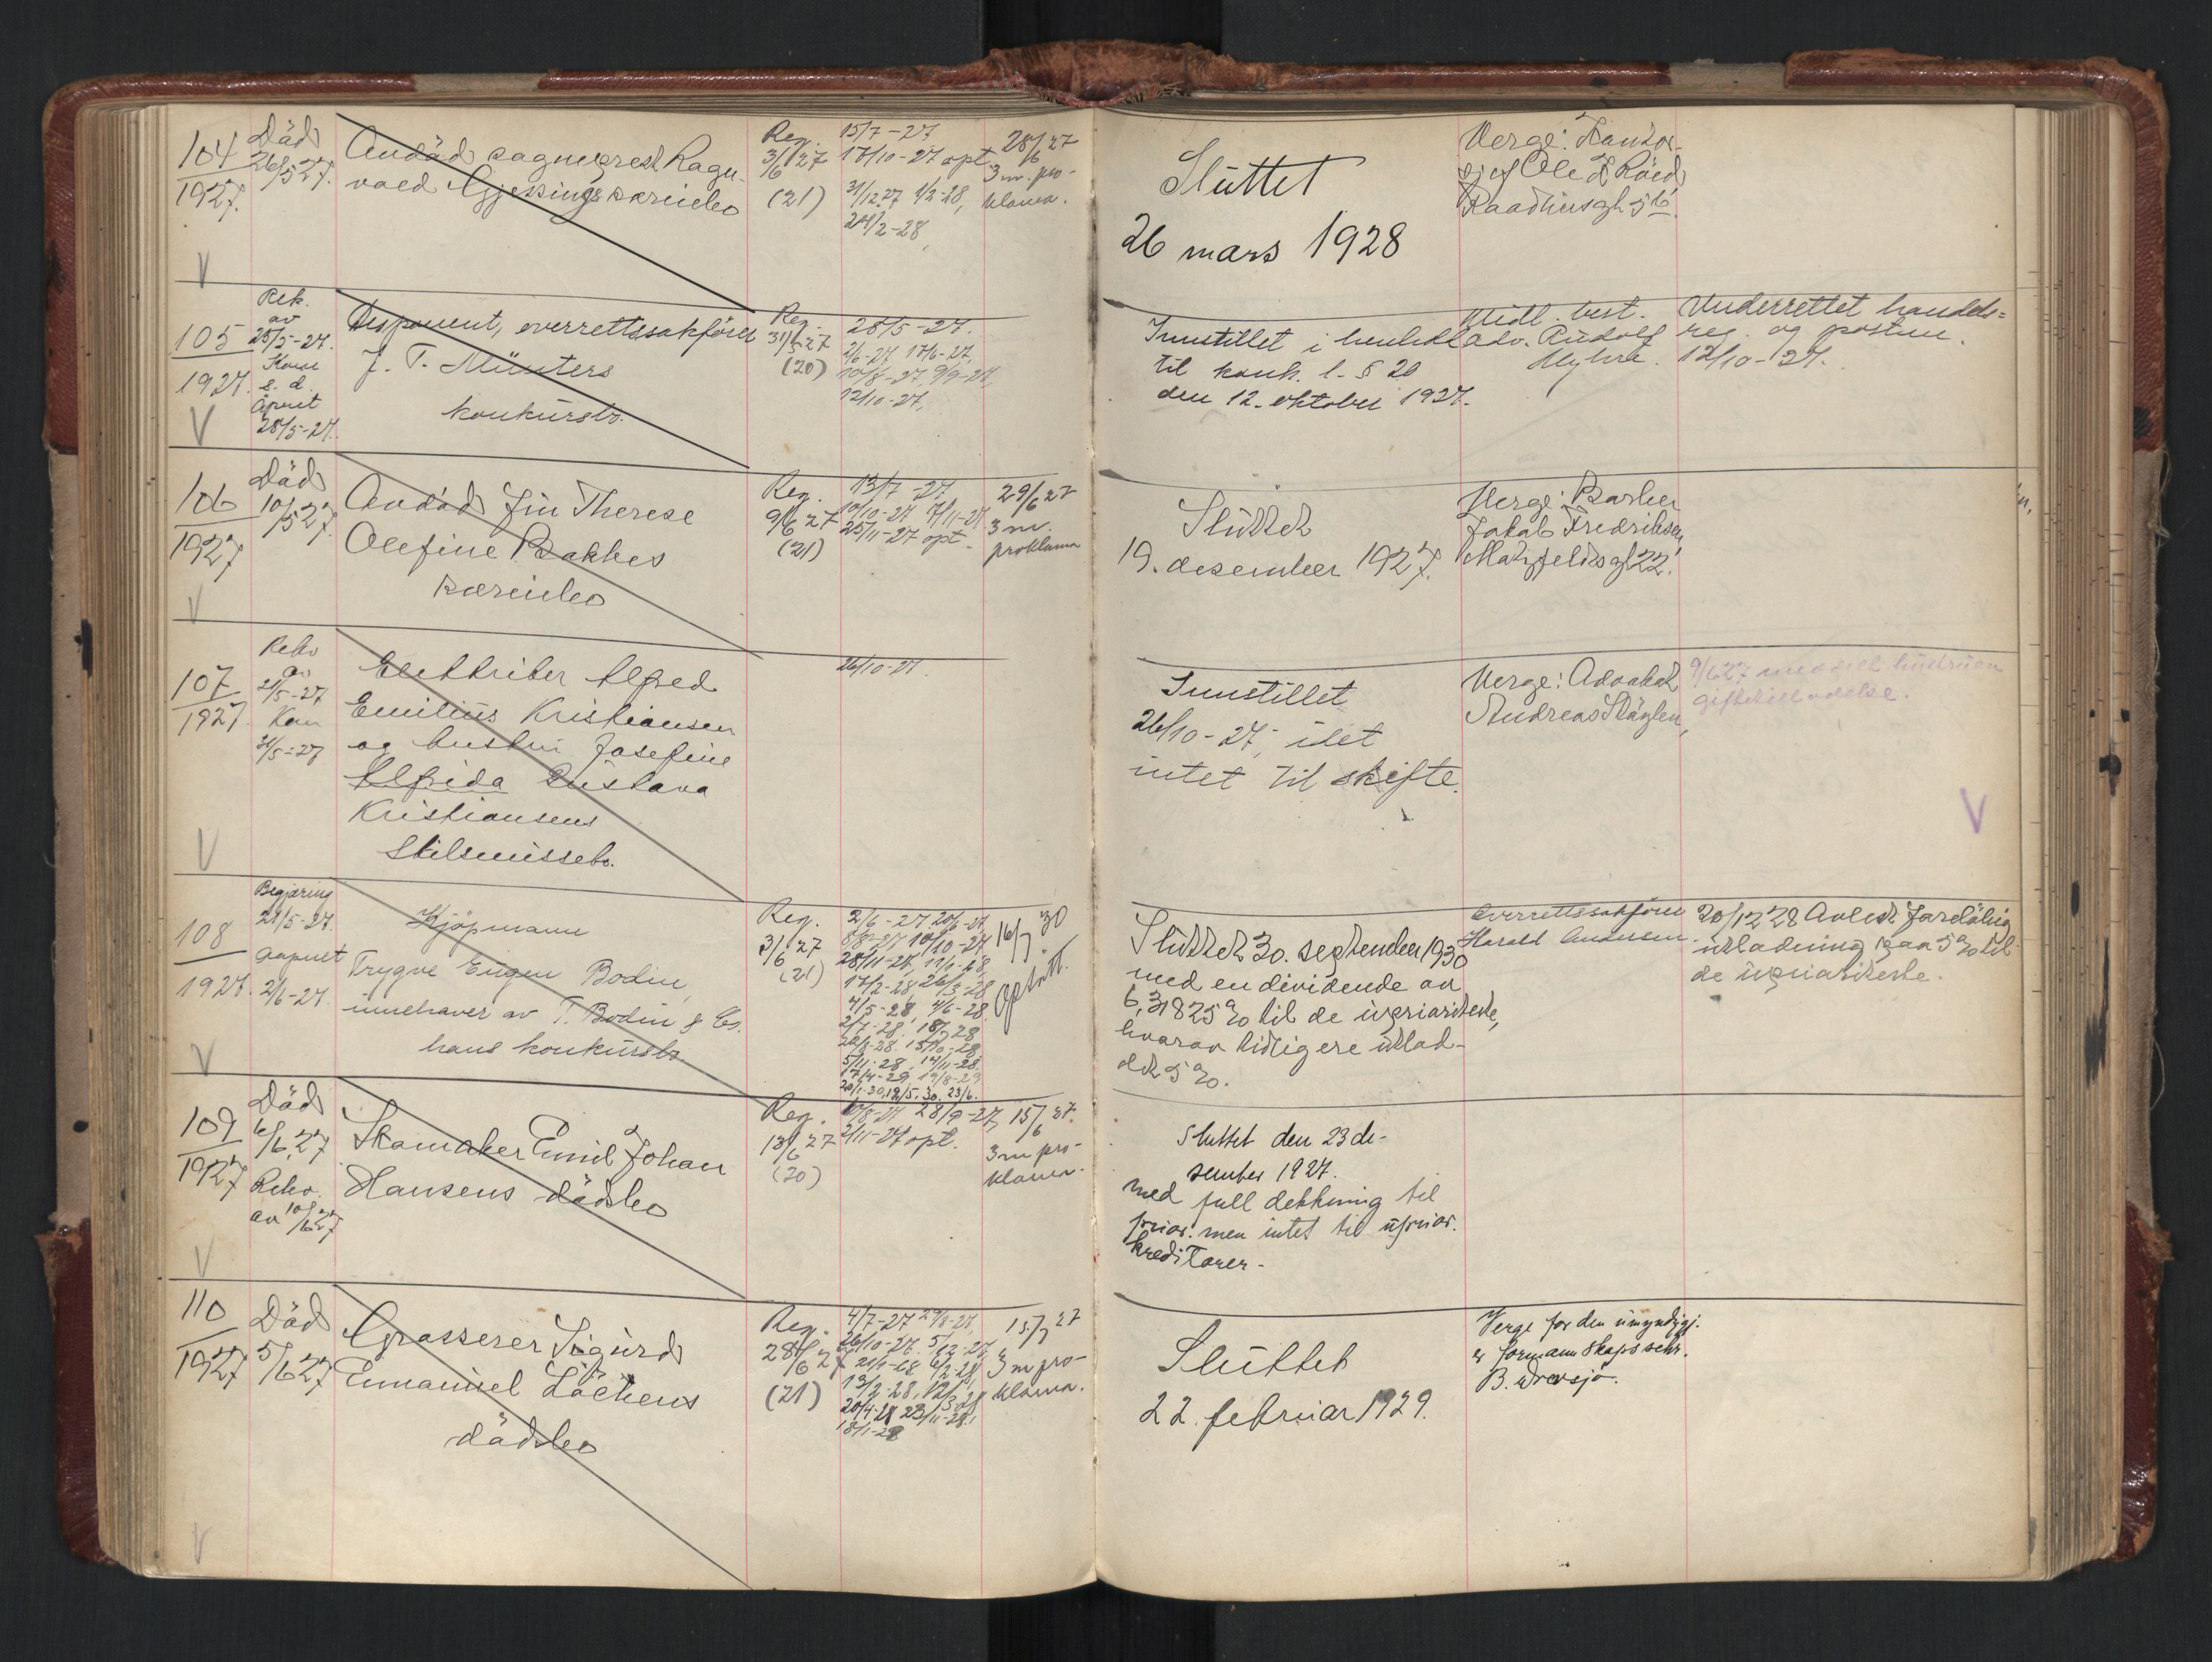 104
1927.
Död
26/5 27.
Avdöd sogneprest Ragn-
vald Gjessings særeiebo
Reg.
3/6 27
(21)
15/7-27
17/10-27 opt
31/12 27 1/2-28,
24/2-28,
28/6 27
3 m. pro-
klama.
Sluttet
26 mars 1928
Verge: Kontor-
sjef Ole
Raadhusgt 5 b.
V
105
1927.
Rek.
av
25/5-27.
Kom
s. d.
Åpnet
28/5-27.
Disponent, overrettssakförer
J. T. Münsters
konkursbo.
Reg.
31/5 27
(20)
28/5-27.
2/6-27, 17/6-27,
10/8-27, 9/9-27,
12/10-27.
Innstillet i henhold
til konk. l. § 20
den 12. oktober 1927.
Midl. best.
adv. Rudolf
Myhre.
Underrettet handels=
reg. og postm.
12/10-27.
V
106
1927
Död
10/5 27.
Avdöd frk Therese
Olefine Bakkes
særeiebo
Reg.
9/6 27
(21)
13/7-27
10/10-27 17/11-27
25/11-27 opt.
29/6 27
3 m.
proklama
Sluttet
19. desember 1927.
Verge: Barber
Jakob Fredriksen,
22.
V
107
1927
Rekv
av
21/5-27
Kom
31/5-27
Elektriker Alfred
Emilius Kristiansen
og hustru Josefine
Alfrida Gustava
Kristiansens
Skilsmissebo.
26/10-27.
Innstillet
26/10-27, idet
intet til skifte.
Verge: Advokat
Andreas
9/6 27 meddelt hustruen
giftetilladelse.
V
V
108
1927.
Begjæring
24/5-27.
aapnet
2/6-27.
Kjöpmann
Trygve Eugen Bodin,
innehaver av T. Bodin & Co.
hans konkursbo
Reg.
3/6 27
(21)
2/6-27 20/6-27
8/8-27, 10/10-27
28/11-27, 12/1-28,
17/2-28, 26/3-28
4/5-28, 4/6-28
2/7-28. 18/7 28
22/8-28. 15/10-28
5/11-28, 14/11-28.
17/4-29. 19/8-29
20/1-30, 19/5-30. 23/6.
16/7 30
Optatt.
Sluttet 30. september 1930
med en dividende av
6,31825 % til de uprioriterte,
hvorav tidligere utlod-
det 5 %.
Overrettssakförer
Harald Andersen.
20/12 28 Avholdt foreløbig
utlodning paa 5 % til
de uprioriterte.
V
109
1927
Död
6/6 27
Rekv.
av 10/6 27
Skomaker Emil Johan
Hansens dödsbo
Reg.
13/6 27
(20)
8/8-27 28/9-27,
2/11-27 opt.
15/6 27.
3 m pro-
klama.
Sluttet den 23 de-
sember 1927.
med full dekkning til
prior. men intet til uprior.
kreditorer.
V
110
1927
Död
5/6 27
Grosserer Sigurd
Emanuel Löckens
dödsbo
Reg.
28/6 27
(21)
4/7-27 29/8-27,
26/10-27. 5/12-27,
21/1-28 6/2-28,
13/2-28, 12/3 28
20/4-28 23/11-28,
18/1-28
15/7 27
3 m pro-
klama.
Sluttet
22. februar 1929.
Verge for den umyndige.
er formannskapssekr.
B.
V